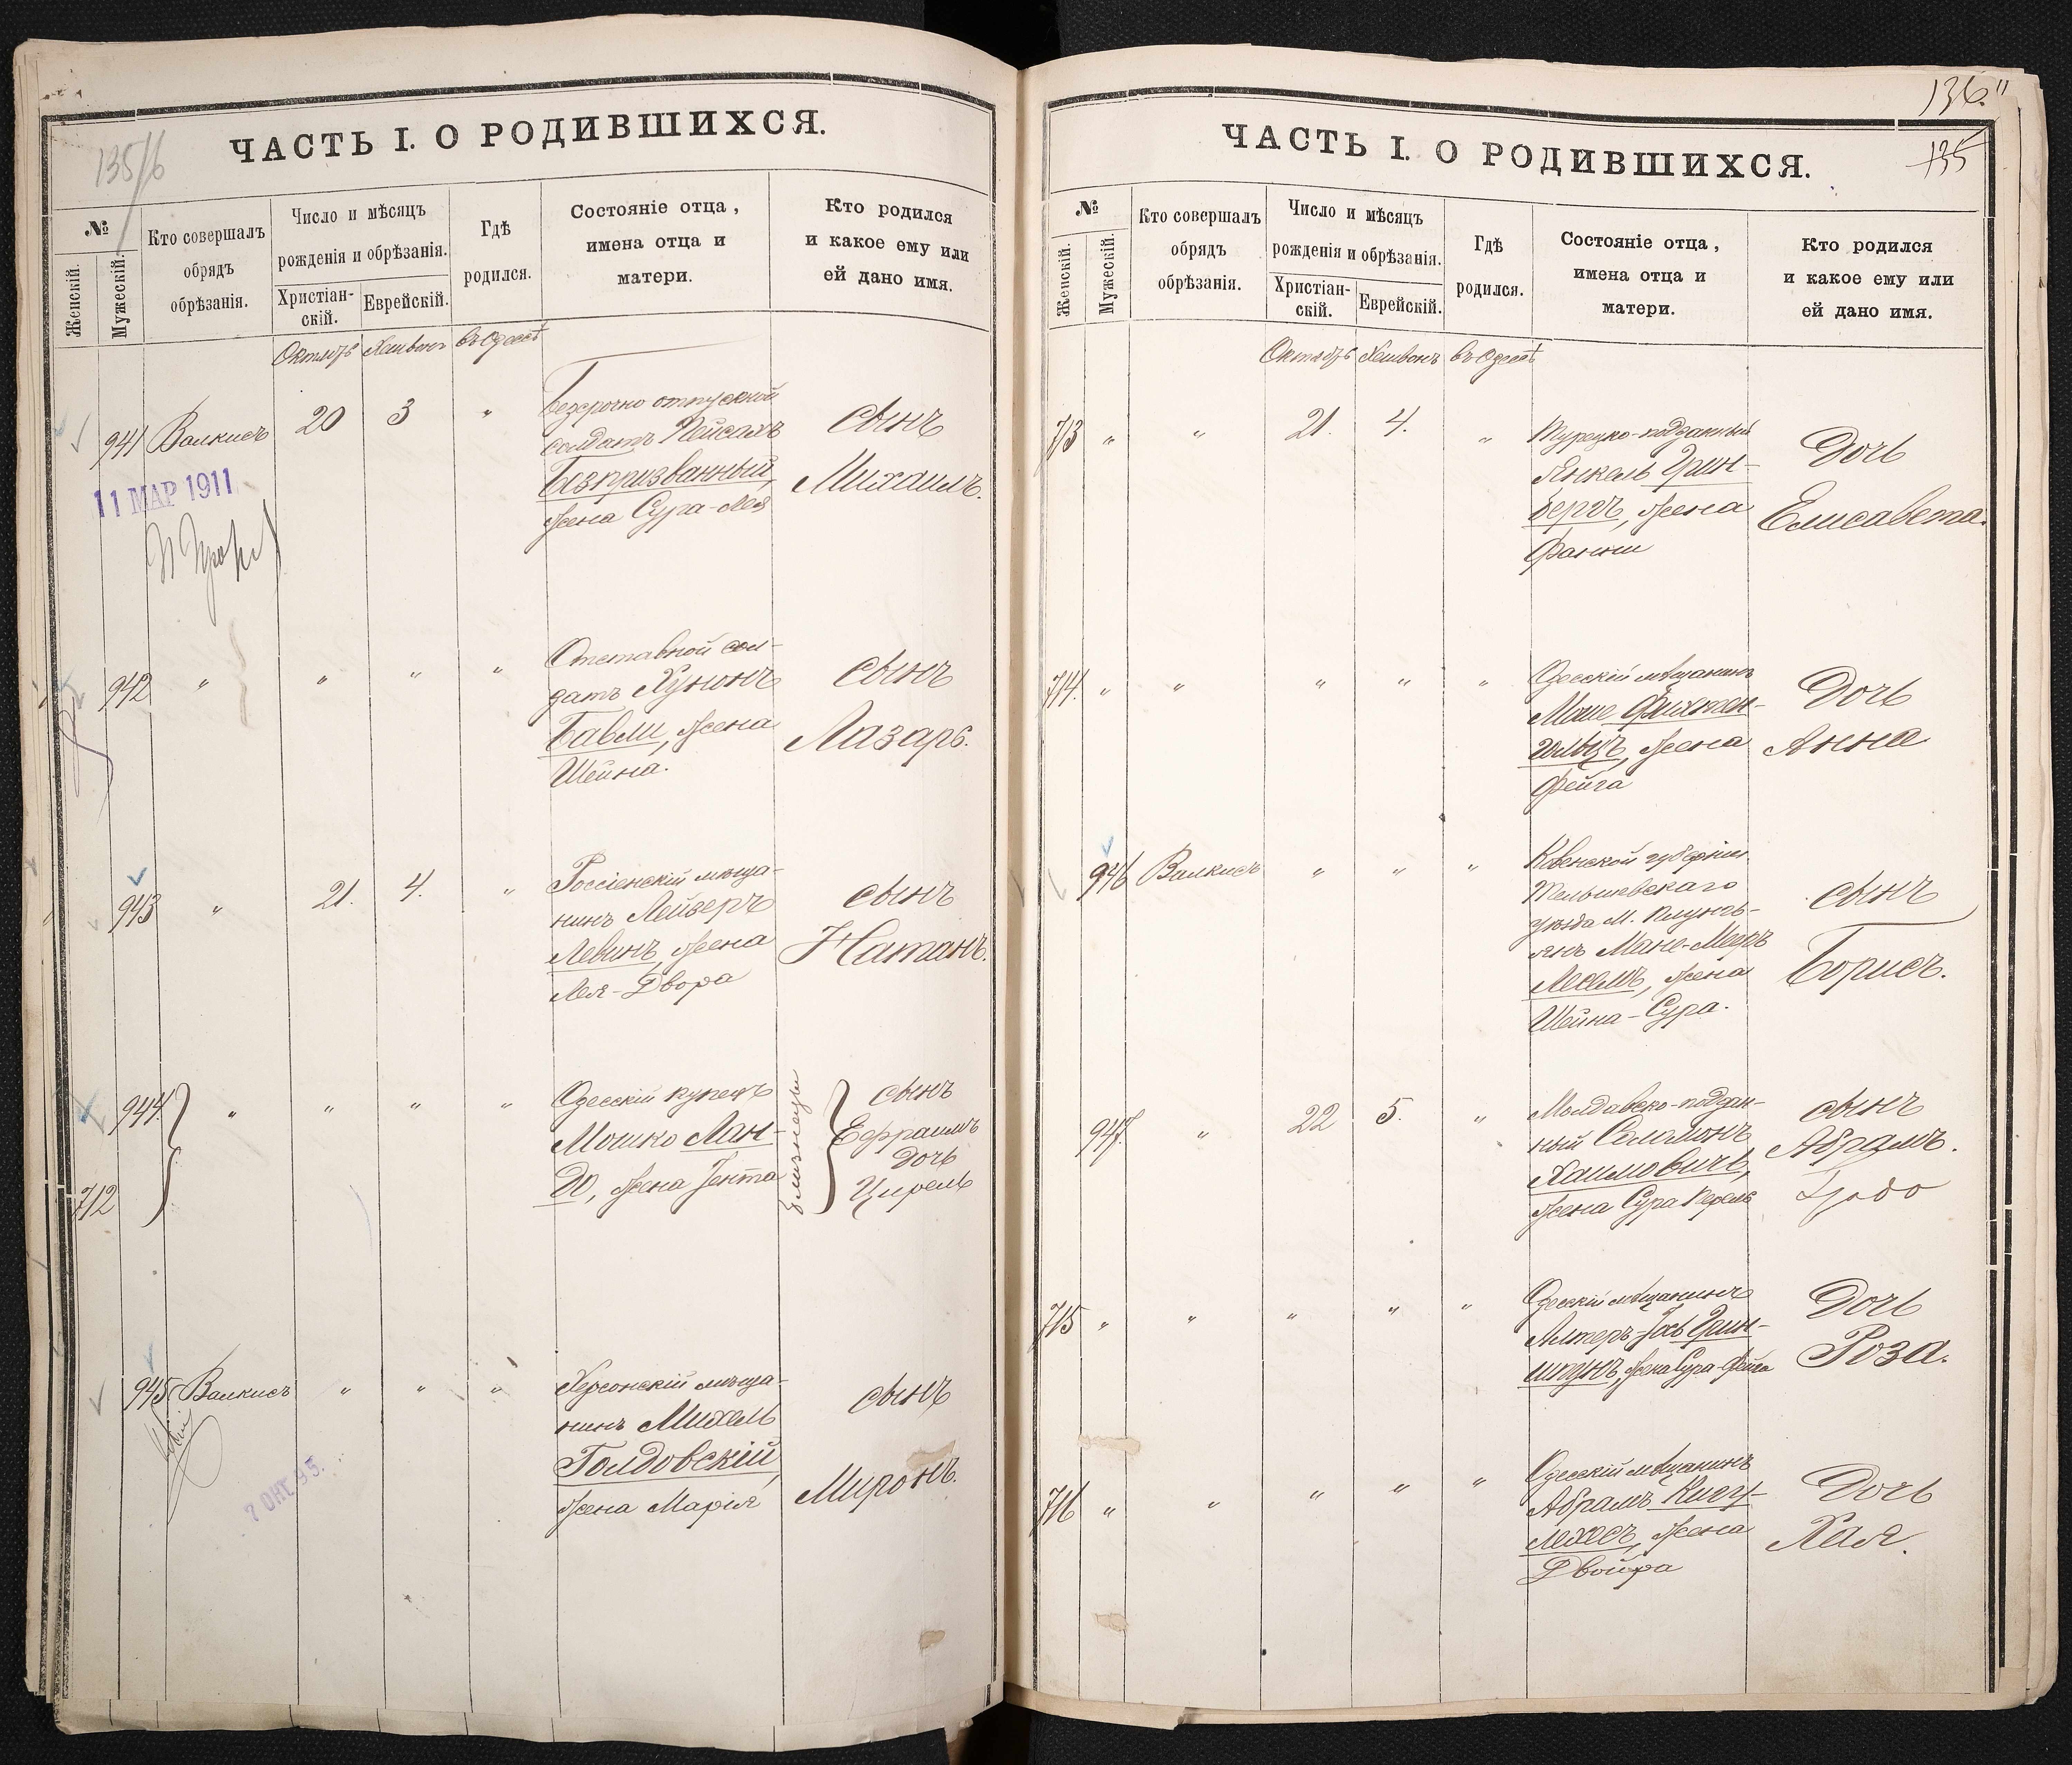 135/6
ЧАСТЬ I. О РОДИВШИХСЯ.
№
Женскій.
Мужескій.
Кто совершалъ
обрядъ
обрѣзанія.
Число и мѣсяцъ
рожденія и обрѣзанія.
Христіан-
скій.
Еврейскій.
Гдѣ
родился.
Состояніе отца,
имена отца и
матери.
Кто родился
и какое ему или
ей дано имя.
Октябр Хешвонъ въ Одессѣ
941 Валкисъ 20 3 "
Безсрочно отпускной
солдатъ Пейсахъ
Безпризванный,
жена Сура-Лея
сынъ
Михаилъ.
11 МАР 1911
942 " " " "
Отставной сол-
датъ Хунонъ
Бавли, жена
Шейна.
сынъ
Лазарь.
943 " 21. 4. "
Россіенскій мѣща-
нинъ Лейзеръ
Левинъ, жена
Лея-Двора
сынъ
Натанъ.
944. " " " "
712
Одесскій купецъ
Мошко Лан-
до, жена Гента
близнецы
сынъ
Ефраимъ
дочь
Цирель
945 Валкисъ " " "
Херсонскій мѣща-
нинъ Михель
Голдовскій,
жена Марія
сынъ
Миронъ.
7 ОКТ. 95.
136."
135
ЧАСТЬ I. О РОДИВШИХСЯ.
№
Женскій.
Мужескій.
Кто совершалъ
обрядъ
обрѣзанія.
Число и мѣсяцъ
рожденія и обрѣзанія.
Христіан-
скій.
Еврейскій.
Гдѣ
родился.
Состояніе отца,
имена отца и
матери.
Кто родился
и какое ему или
ей дано имя.
Октябр Хешвонъ въ Одессѣ
713 " " 21. 4. "
Турецко-подданный
Янкель Грин-
бергъ, жена
Фанни
Дочь
Елисавета.
714. " " " " "
Одесскій мѣщанинъ
Моше
жена
Фейга
Дочь
Анна
946 Валкисъ " " "
Ковенской губерніи
Тельшевскаго
уѣзда м. Плунгь-
янъ Мане-Мееръ
жена
Шейна-Сура.
сынъ
Борисъ.
947. " 22 5. "
Молдавско-поддан-
ный Соломонъ
Хаимовичъ,
жена Сура Перель
сынъ
Абрамъ.
715 " " " " "
Одесскій мѣщанинъ
Алтеръ-Іось Грин-
шпунъ, жена Сура-Фейга
Дочь
Роза.
716 " " " " "
Одесскій мѣщанинъ
Абрамъ
жена
Двойра
Дочь
Хая.